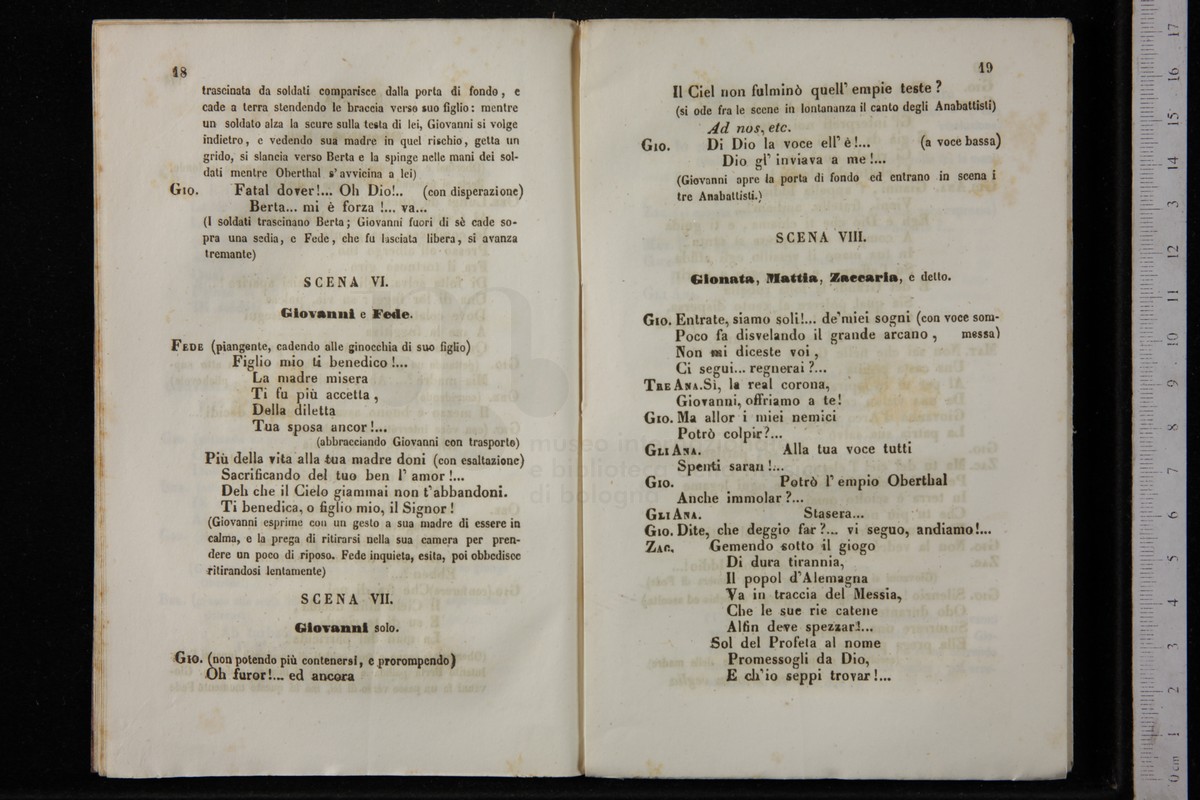 18
trascinata da soldati comparisce dalla porta di fondo, e
cade a terra stendendo le braccia verso suo figlio: mentre
un soldato alza la scure sulla testa di lei, Giovanni si volge
indietro, e vedendo sua madre in quel rischio, getta un
grido, si slancia verso Berta e la spinge nelle mani dei sol-
dati mentre Oberthal s'avvicina a lei)
GIO. Fatal dover!... Oh Dio!.. (con disperazione)
Berta... mi è forza !... va...
(I soldati trascinano Berta; Giovanni fuori di sè cade so-
pra una sedia, e Fede, che fu lasciata libera, si avanza
tremante)
SCENA VI.
Giovanni e Fede.
FEDE (piangente, cadendo alle ginocchia di suo figlio)
Figlio mio ti benedico !...
La madre misera
Ti fu più accetta,
Della diletta
Tua sposa ancor!...
(abbracciando Giovanni con trasporto)
Più della vita alla tua madre doni (con esaltazione)
Sacrificando del tuo ben l' amor!...
Deh che il Cielo giammai non t'abbandoni.
Ti benedica, o figlio mio, il Signor!
(Giovanni esprime con un gesto a sua madre di essere in
calma, e la prega di ritirarsi nella sua camera per pren-
dere un poco di riposo. Fede inquieta, esita, poi obbedisce
ritirandosi lentamente)
SCENA VII.
Giovanni solo.
GIO. (non potendo più contenersi, e prorompendo)
Oh furor!... ed ancora
19
Il Ciel non fulminò quell' empie teste?
(si ode fra le scene in lontananza il canto degli Anabattisti)
Ad nos, etc.
GIO. Di Dio la voce ell' è!... (a voce bassa)
Dio gl' inviava a me!...
(Giovanni apre la porta di fondo ed entrano in scena i
tre Anabattisti.)
SCENA VIII.
Gionata, Mattia, Zaccaria, e detto.
GIO. Entrate, siamo soli!... de'miei sogni (con voce som-
Poco fa disvelando il grande arcano, messa)
Non mi diceste voi,
Ci segui... regnerai?...
TRE ANA. Si, la real corona,
Giovanni, offriamo a te!
GIO. Ma allor i miei nemici
Potrò colpir?...
GLI ANA. Alla tua voce tutti
Spenti saran!...
GIO. Potrò l' empio Oberthal
Anche immolar?...
GLI ANA. Stasera...
GIO. Dite, che deggio far?... vi seguo, andiamo!...
ZAC. Gemendo sotto il giogo
Di dura tirannia,
Il popol d'Alemagna
Va in traccia del Messia,
Che le sue rie catene
Alfin deve spezzar!...
Sol del Profeta al nome
Promessogli da Dio,
E ch'io seppi trovar!...